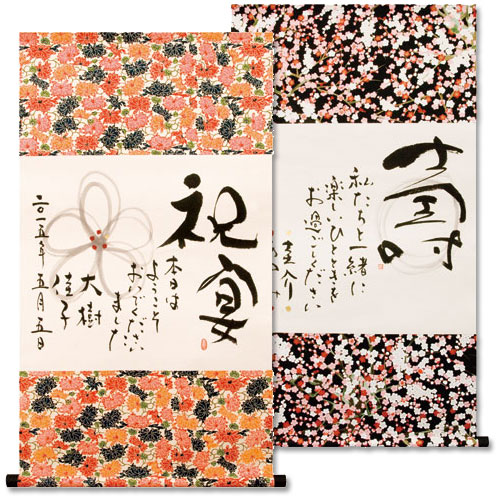 祝宴
本日は
ようこそ
おいでください
ました
大樹
佳子
二〇一五年 五月五日
寿
私たちと一緒に
楽しいひとときを
お過ごしください
圭介